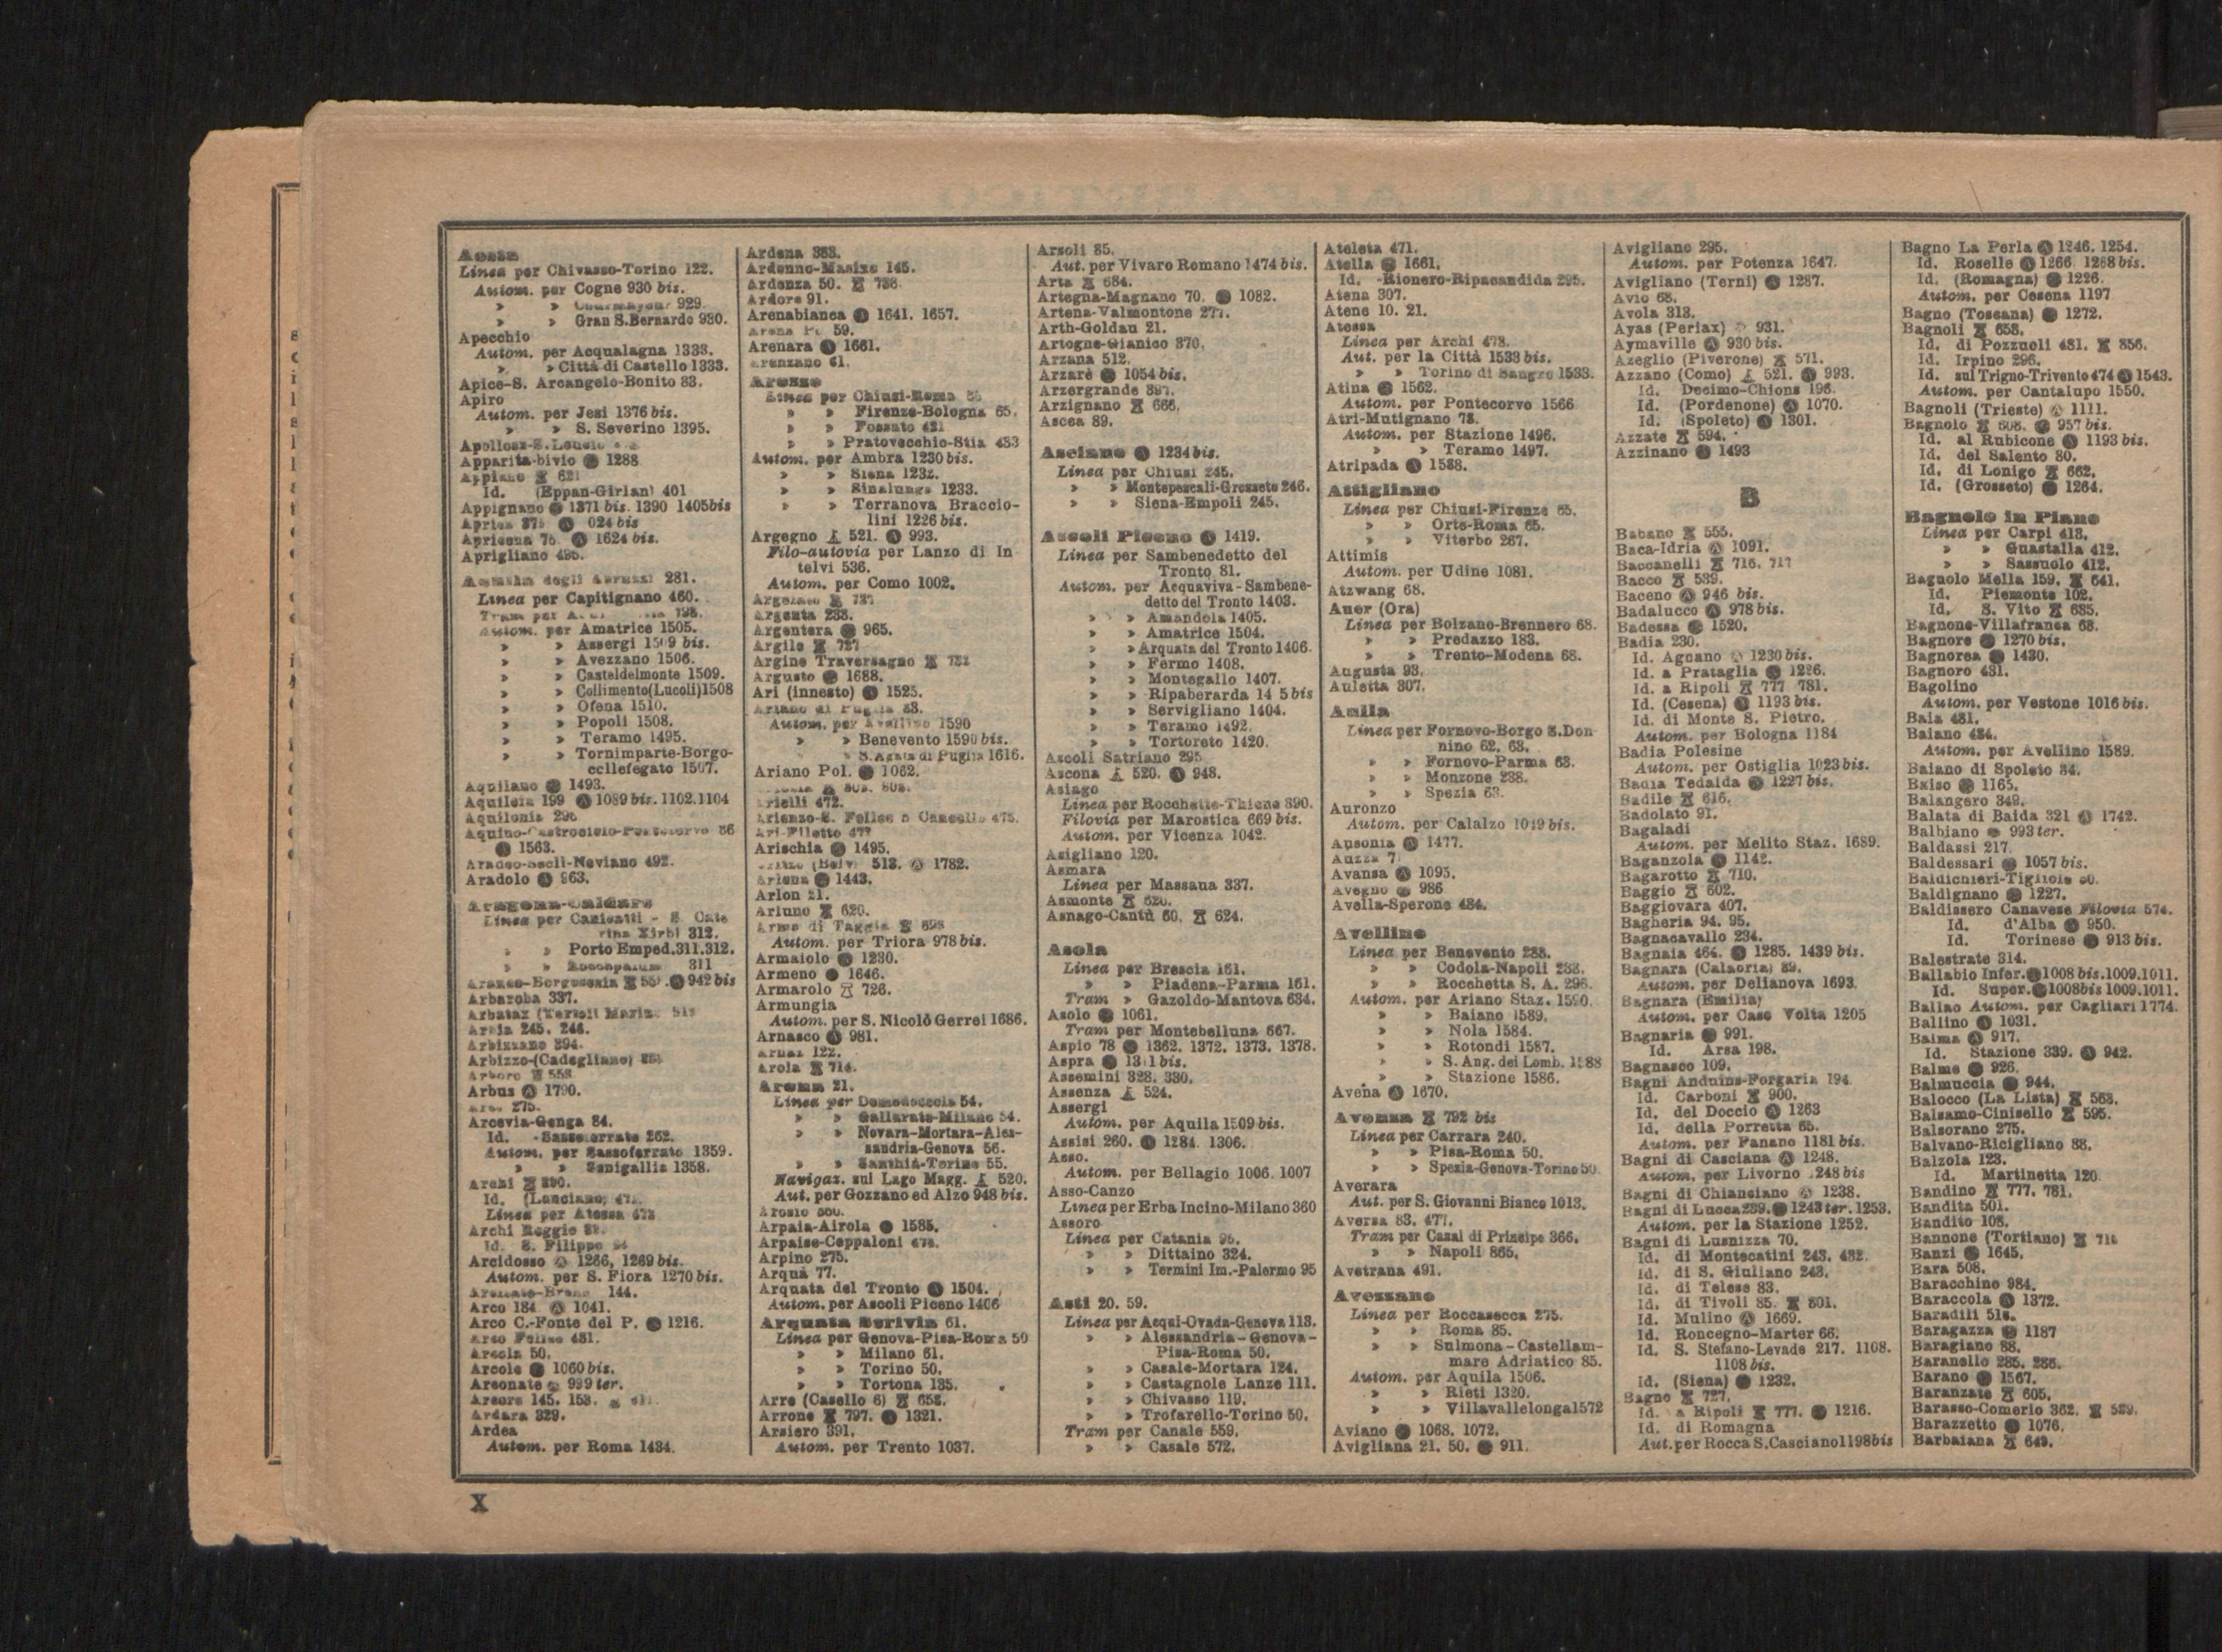 Aosta
Linea per Chivasso-Torino 122.
Autom. per Cogne 930 bis.
» » Courmayeur 929.
» » Gran S.Bernardo 930.
Apecchio
Autom. per Acqualagna 1333.
» » Città di Castello 1333.
Apice-S. Arcangelo-Bonito 83.
Apiro
Autom. per Jesi 1376 bis.
» » S. Severino 1395.
Apparita-bivio 1288
Appiano 621
Id. (Eppan-Girlan) 401
Appignano 1371 bis. 1390 1405bis
Apricena 76. Ⓐ 1624 bis.
Aprigliano 495.
degli Abruzzi 281.
Linea per Capitignano 460.
Autom. per Amatrice 1505.
» » Assergi 1509 bis.
» » Avezzano 1506.
» » Casteldelmonte 1509.
» » Collimento(Lucoli)1508
» » Ofena 1510.
» » Popoli 1508.
» » Teramo 1495.
» » Tornimparte-Borgo-
collefegato 1507.
Aquilano 1493.
Aquileia 199 Ⓐ 1089 bis. 1102.1104
Aquilonia 296
1563.
Aradeo-Secli-Neviano 492.
Aradolo Ⓐ 963.
Aragona-Caldare
Linea per Canicatti - S. Cate
rina Xirbi 312.
» » Porto Emped.311.312.
311
942 bis
Arbaroba 337.
Arbia 245. 246.
Arbizzano 394.
Arbizzo-(Cadegliano)
Arbus Ⓐ 1790.
275.
Arcevia-Genga 84.
Id. -Sassoferrato 262.
Autom. per Sassoferrato 1359.
» » Senigallia 1358.
Archi
Id. (Lanciano)
Linea per Atessa 473
Archi Reggio
Id. S. Filippo
Arcidosso Ⓐ 1266, 1269 bis.
Autom. per S. Fiora 1270 bis.
144.
Arco 184 Ⓐ 1041.
Arco C.-Fonte del P. 1216.
Arco Felice 481.
Arcola 50.
Arcole 1060 bis.
Arconate 999 ter.
Arcore 145. 153.
Ardara 329.
Ardea
Autom. per Roma 1434.
Ardena 383.
Ardenno-Masino 145.
Ardenza 50. 786
Ardore 91.
Arenabianca Ⓐ 1641. 1657.
Arena Po 59.
Arenara Ⓐ 1661.
Arenzano 61.
Arezzo
Linea per Chiusi-Roma 65
» » Firenze-Bologna 65.
» » Fossato 421
» » Pratovecchio-Stia 433
Autom. per Ambra 1230 bis.
» » Siena 1232.
» » Sinalunga 1233.
» » Terranova Braccio-
lini 1226 bis.
Argegno 521. Ⓐ 993.
Filo-autovia per Lanzo di In
telvi 536.
Autom. per Como 1002.
Argenta 233.
Argentera 965.
Argile 727
Argine Traversagno 732
Argusto 1688.
Ari (innesto) 1525.
Ariano di Puglia 83.
Autom. per Avellino 1590
» » Benevento 1590 bis.
» S.Agata di Puglia 1616.
Ariano Pol. 1062.
Arielli 472.
Arienzo-S. Felice a Cancello 475.
Ari-Filetto 477
Arischia 1495.
513. Ⓐ 1782.
1443.
Arlon 21.
Arluno 620.
Arma di Taggia 898
Autom. per Triora 978 bis.
Armaiolo 1230.
Armeno 1646.
Armarolo 726.
Armungia
Autom. per S. Nicolò Gerrei 1686.
Arnasco Ⓐ 981.
Arnaz 122.
Arola 714.
Arona 21.
Linea per Domodossola 54.
» » Gallarate-Milano 54.
» » Novara-Mortara-Ales-
sandria-Genova 56.
» » Santhià-Torino 55.
Navigaz. sul Lago Magg. 520.
Aut. per Gozzano ed Alzo 948 bis.
Arosio
Arpaia-Airola 1585.
Arpaise-Ceppaloni 474.
Arpino 275.
Arquà 77.
Arquata del Tronto Ⓐ 1504.
Autom. per Ascoli Piceno 1406
Arquata Scrivia 61.
Linea per Genova-Pisa-Roma 50
» » Milano 61.
» » Torino 50.
» » Tortona 135.
Arre (Casello 6) 658.
Arrone 797. 1321.
Arsiero 391.
Autom. per Trento 1037.
Arsoli 85.
Aut. per Vivaro Romano 1474 bis.
Arta 684.
Artegna-Magnano 70. 1082.
Artena-Valmontone 277.
Arth-Goldau 21.
Artogne-Gianico 370.
Arzana 512.
Arzarè 1054 bis.
Arzergrande 397.
Arzignano 666.
Ascea 89.
Asciano Ⓐ 1234 bis.
Linea per Chiusi 245.
» » Montepescali-Grosseto 246.
» » Siena-Empoli 245.
Ascoli Piceno Ⓐ 1419.
Linea per Sambenedetto del
Tronto 81.
Autom. per Acquaviva - Sambene-
detto del Tronto 1403.
» » Amandola 1405.
» » Amatrice 1504.
» » Arquata del Tronto 1406
» » Fermo 1408.
» » Montegallo 1407.
» » Ripaberarda 14 5 bis
» » Servigliano 1404.
» » Teramo 1492.
» » Tortoreto 1420.
Ascoli Satriano 295
Ascona 520. Ⓐ 948.
Asiago
Linea per Rocchetta-Thiene 390.
Filovia per Marostica 669 bis.
Autom. per Vicenza 1042.
Asigliano 120.
Asmara
Linea per Massaua 337.
Asmonte 620.
Asnago-Cantù 60. 624.
Asola
Linea per Brescia 161.
» » Piadena-Parma 161.
Tram » Gazoldo-Mantova 634.
Asolo 1061.
Tram per Montebelluna 667.
Aspio 78 1362. 1372. 1373. 1378.
Aspra 13 1 bis.
Assemini 328. 330.
Assenza 524.
Assergi
Autom. per Aquila 1509 bis.
Assisi 260. 1284. 1306.
Asso.
Autom. per Bellagio 1006. 1007
Asso-Canzo
Linea per Erba Incino-Milano 360
Assoro
Linea per Catania 95.
» » Dittaino 324.
» » Termini Im.-Palermo 95
Asti 20. 59.
Linea per Acqui-Ovada-Genova 113.
» » Alessandria - Genova -
Pisa-Roma 50.
» » Casale-Mortara 124.
» » Castagnole Lanze 111.
» » Chivasso 119.
» » Trofarello-Torino 50.
Tram per Canale 559.
» » Casale 572.
Ateleta 471.
Atella 1661.
Id. -Rionero-Ripacandida 295.
Atena 307.
Atene 10. 21.
Atessa
Linea per Archi 473.
Aut. per la Città 1533 bis.
» » Torino di Sangro 1533.
Atina 1562.
Autom. per Pontecorvo 1566
Atri-Mutignano 78.
Autom. per Stazione 1496.
» » Teramo 1497.
Atripada Ⓐ 1588.
Attigliano
Linea per Chiusi-Firenze 65.
» » Orte-Roma 65.
» » Viterbo 267.
Attimis
Autom. per Udine 1081.
Atzwang 68.
Auer (Ora)
Linea per Bolzano-Brennero 68.
» » Predazzo 183.
» » Trento-Modena 68.
Augusta 93.
Auletta 307.
Aulla
Linea per Fornovo-Borgo S.Don-
nino 62. 63.
» » Fornovo-Parma 63.
» » Monzone 238.
» » Spezia 63.
Auronzo
Autom. per Calalzo 1049 bis.
Ausonia Ⓐ 1477.
Auzza 7
Avansa Ⓐ 1095.
Avegno 986
Avella-Sperone 484.
Avellino
Linea per Benevento 288.
» » Codola-Napoli 288.
» » Rocchetta S. A. 296.
Autom. per Ariano Staz. 1590.
» » Baiano 1589.
» » Nola 1584.
» » Rotondi 1587.
» » S. Ang. dei Lomb. 1588
» » Stazione 1586.
Avena Ⓐ 1670.
Avenza 792 bis
Linea per Carrara 240.
» » Pisa-Roma 50.
» » Spezia-Genova-Torino 50.
Averara
Aut. per S. Giovanni Bianco 1013.
Aversa 83. 477.
Tram per Casal di Principe 366.
» » Napoli 865.
Avetrana 491.
Avezzano
Linea per Roccasecca 275.
» » Roma 85.
» » Sulmona - Castellam-
mare Adriatico 85.
Autom. per Aquila 1506.
» » Rieti 1320.
» » Villavallelonga1572
Aviano 1068. 1072.
Avigliana 21. 50. 911.
Avigliano 295.
Autom. per Potenza 1647.
Avigliano (Terni) Ⓐ 1287.
Avio 68.
Avola 313.
Ayas (Periax) 931.
Aymaville Ⓐ 930 bis.
Azeglio (Piverone) 571.
Azzano (Como) 521. Ⓐ 993.
Id. Decimo-Chions 196.
Id. (Pordenone) Ⓐ 1070.
Id. (Spoleto) Ⓐ 1301.
Azzate 594.
Azzinano 1493
B
Babano 555.
Baca-Idria Ⓐ 1091.
Baccanelli 716. 717
Bacco 539.
Baceno Ⓐ 946 bis.
Badalucco Ⓐ 978 bis.
Badessa 1520.
Badia 230.
Id. Agnano Ⓐ 1230 bis.
Id. a Prataglia 1226.
Id. a Ripoli 777 781.
Id. (Cesena) Ⓐ 1193 bis.
Id. di Monte S. Pietro.
Autom. per Bologna 1184
Badia Polesine
Autom. per Ostiglia 1023 bis.
Badia Tedalda 1227 bis.
Badile 616.
Badolato 91.
Bagaladi
Autom. per Melito Staz. 1689.
Baganzola 1142.
Bagarotto 710.
Baggio 602.
Baggiovara 407.
Bagheria 94. 95.
Bagnacavallo 234.
Bagnaia 464. 1285. 1439 bis.
Bagnara (Calabria) 89.
Autom. per Delianova 1693.
Bagnara (Emilia)
Autom. per Case Volta 1205
Bagnaria 991.
Id. Arsa 198.
Bagnasco 109.
Bagni Anduins-Forgaria 194
Id. Carboni 900.
Id. del Doccio Ⓐ 1263
Id. della Porretta 65.
Autom. per Fanano 1181 bis.
Bagni di Casciana Ⓐ 1248.
Autom. per Livorno 1248 bis
Bagni di Chianciano Ⓐ 1238.
Bagni di Lucca 239. 1243 ter. 1253.
Autom. per la Stazione 1252.
Bagni di Lusnizza 70.
Id. di Montecatini 243. 432.
Id. di S. Giuliano 243.
Id. di Telese 83.
Id. di Tivoli 85. 801.
Id. Mulino Ⓐ 1669.
Id. Roncegno-Marter 66.
Id. S. Stefano-Levade 217. 1108.
1108 bis.
Id. (Siena) 1232.
Bagno 727.
Id. a Ripoli 777. 1216.
Id. di Romagna
Aut.per Rocca S.Casciano1198bis
Bagno La Perla Ⓐ 1246. 1254.
Id. Roselle Ⓐ 1266 1268 bis.
Id. (Romagna) 1226.
Autom. per Cesena 1197
Bagno (Toscana) 1272.
Bagnoli 658.
Id. di Pozzuoli 481. 856.
Id. Irpino 296.
Id. sul Trigno-Trivento 474 Ⓐ 1543.
Autom. per Cantalupo 1550.
Bagnoli (Trieste) Ⓐ 1111.
Bagnolo 608. 957 bis.
Id. al Rubicone Ⓐ 1193 bis.
Id. del Salento 80.
Id. di Lonigo 662.
Id. (Grosseto) 1264.
Bagnolo in Piano
Linea per Carpi 413.
» » Guastalla 412.
» » Sassuolo 412.
Bagnolo Mella 159. 641.
Id. Piemonte 102.
Id. S. Vito 635.
Bagnone-Villafranca 63.
Bagnore 1270 bis.
Bagnorea 1430.
Bagnoro 431.
Bagolino
Autom. per Vestone 1016 bis.
Baia 481.
Baiano 484.
Autom. per Avellino 1589.
Baiano di Spoleto 84.
Baiso 1165.
Balangero 349.
Balata di Baida 321 Ⓐ 1742.
Balbiano 993 ter.
Baldassi 217.
Baldessari 1057 bis.
Baldichieri-Tigliole 50.
Baldignano 1227.
Baldissero Canavese Filovia 574.
Id. d'Alba 950.
Id. Torinese 913 bis.
Balestrate 314.
Ballabio Infer. 1008 bis.1009.1011.
Id. Super. 1008bis 1009.1011.
Ballao Autom. per Cagliari 1774.
Ballino Ⓐ 1031.
Balma Ⓐ 917.
Id. Stazione 339. Ⓐ 942.
Balme 926.
Balmuccia 944.
Balocco (La Lista) 563.
Balsamo-Cinisello 595.
Balsorano 275.
Balvano-Ricigliano 88.
Balzola 123.
Id. Martinetta 120
Bandino 777. 781.
Bandita 501.
Bandito 108.
Bannone (Tortiano)
Banzi 1645.
Bara 508.
Baracchino 984.
Baraccola Ⓐ 1372.
Baradili
Baragazza 1187
Baragiano 88.
Baranello 285. 286.
Barano 1567.
Baranzate 605.
Barasso-Comerio 362. 539.
Barazzetto 1076.
Barbaiana 649.
X